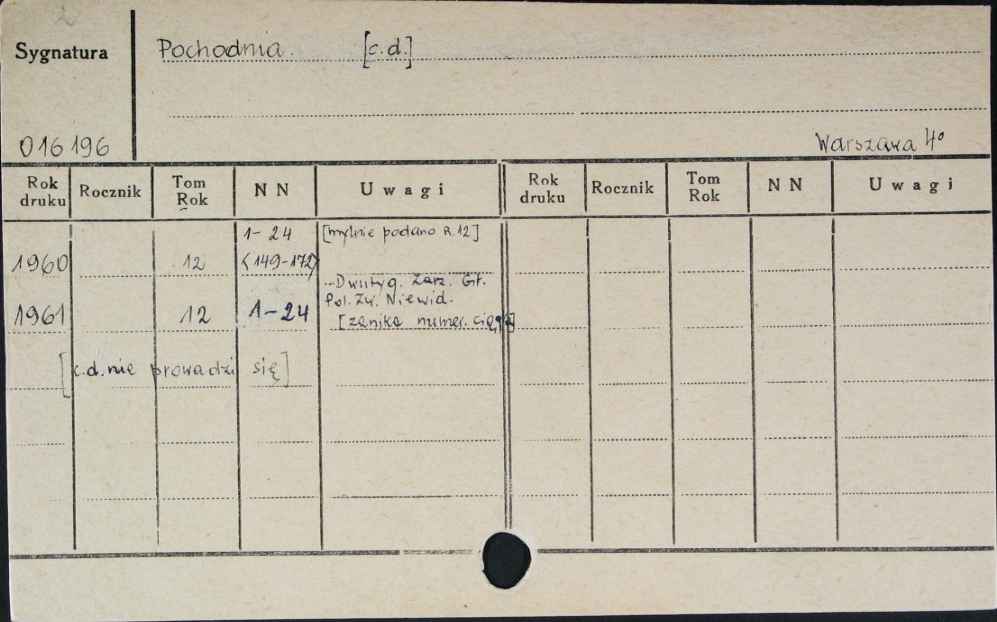 2
Sygnatura
Pochodnia. [c.d.]
016196
Warszawa 4°
Rok druku Rocznik Tom Rok NN Uwagi Rok druku Rocznik Tom Rok NN Uwagi
1-24 [mylnie podano R.12]
1960 12 (149-172)
-Dwutyg. Zarz. Gł.
Pol. Zw. Niewid.
1961 12 1-24
[zanika numer. ciągła]
[c.d. nie prowadzi się]